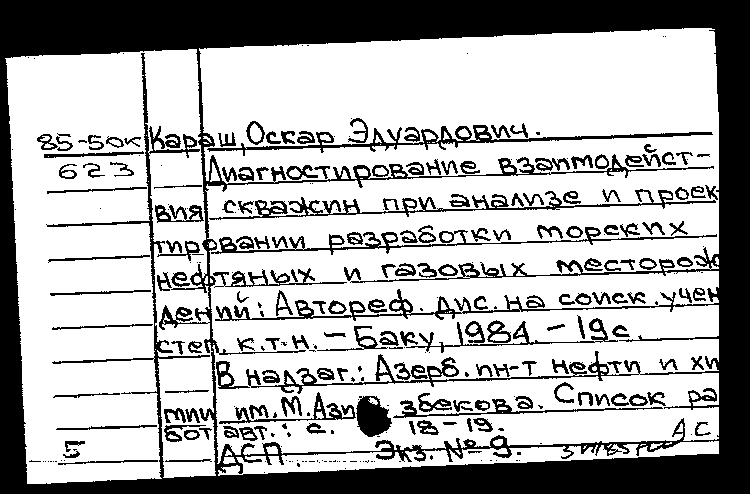 85-50к Караш, Оскар Эдуардович.
623 Диагностирование взаимодейст-
вия скважин при анализе и проек
тировании разработки морских
нефтяных и газовых месторож
дений: Автореф. дис. на соиск. учен
степ. к.т.н. - Баку, 1984. - 19с.
В надзаг.: Азерб. ин-т нефти и хи
мии им. М. Ази збекова. Список ра
бот авт.: с. 18-19.
5 ДСП. Экз. № 9. АС